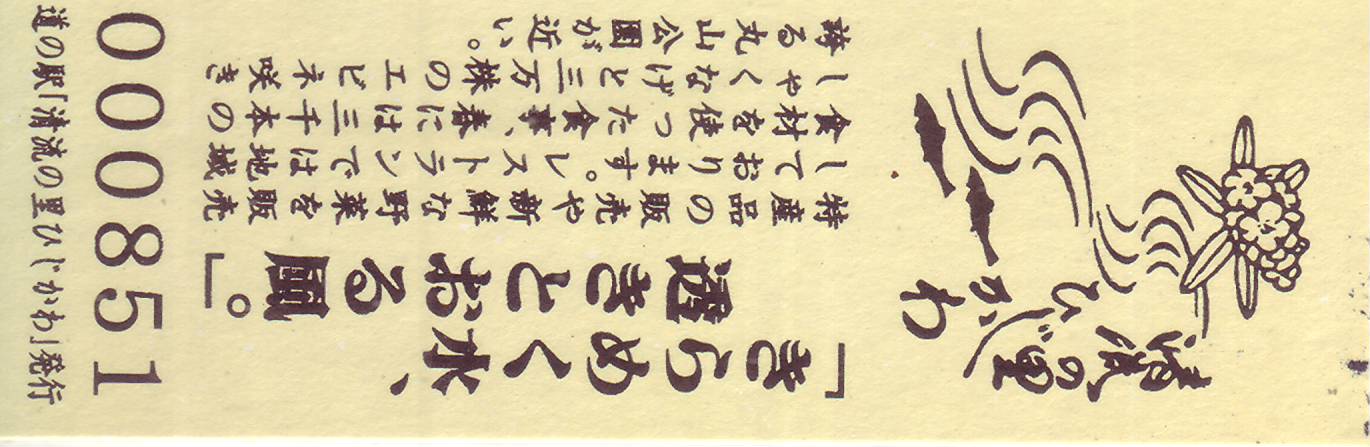 清流の里
ひじかわ
「きらめく水、
透きとおる風」。
特産品の販売や新鮮な野菜を販売
しております。レストランでは地域
食材を使った食事、春には三千本の
しゃくなげと三万株のエビネ咲き
誇る丸山公園が近い。
000851
道の駅「清流の里ひじかわ」発行